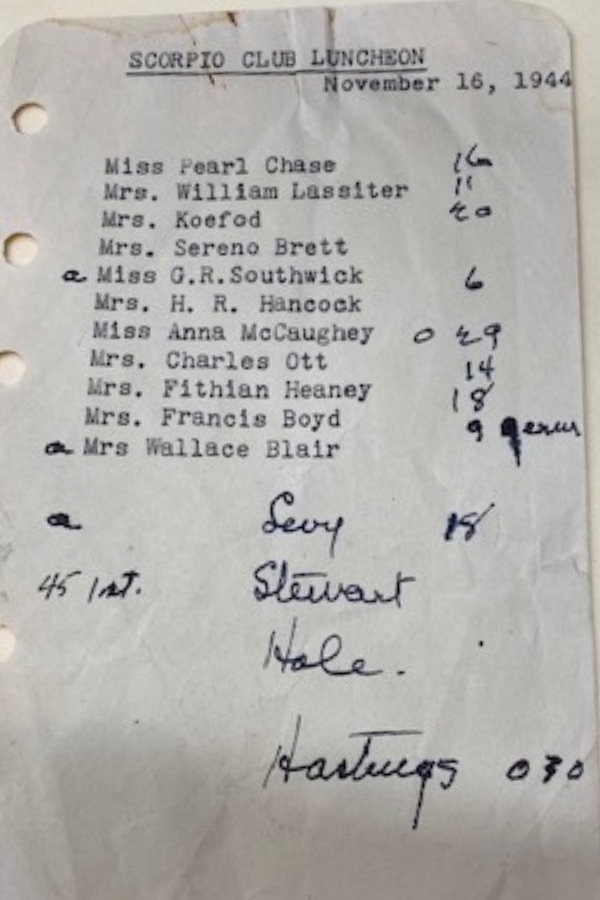 SCORPIO CLUB LUNCHEON
November 16, 1944
Miss Pearl Chase 16
Mrs. William Lassiter 11
Mrs. Koefod 20
Mrs. Sereno Brett
a Miss G.R.Southwick 6
Mrs. H. R. Hancock
Miss Anna McCaughey 0 29
Mrs. Charles Ott 14
Mrs. Fithian Heaney 18
Mrs. Francis Boyd 9
a Mrs Wallace Blair
a Levy 18
45 1st. Stewart
Hole.
Hastings 030